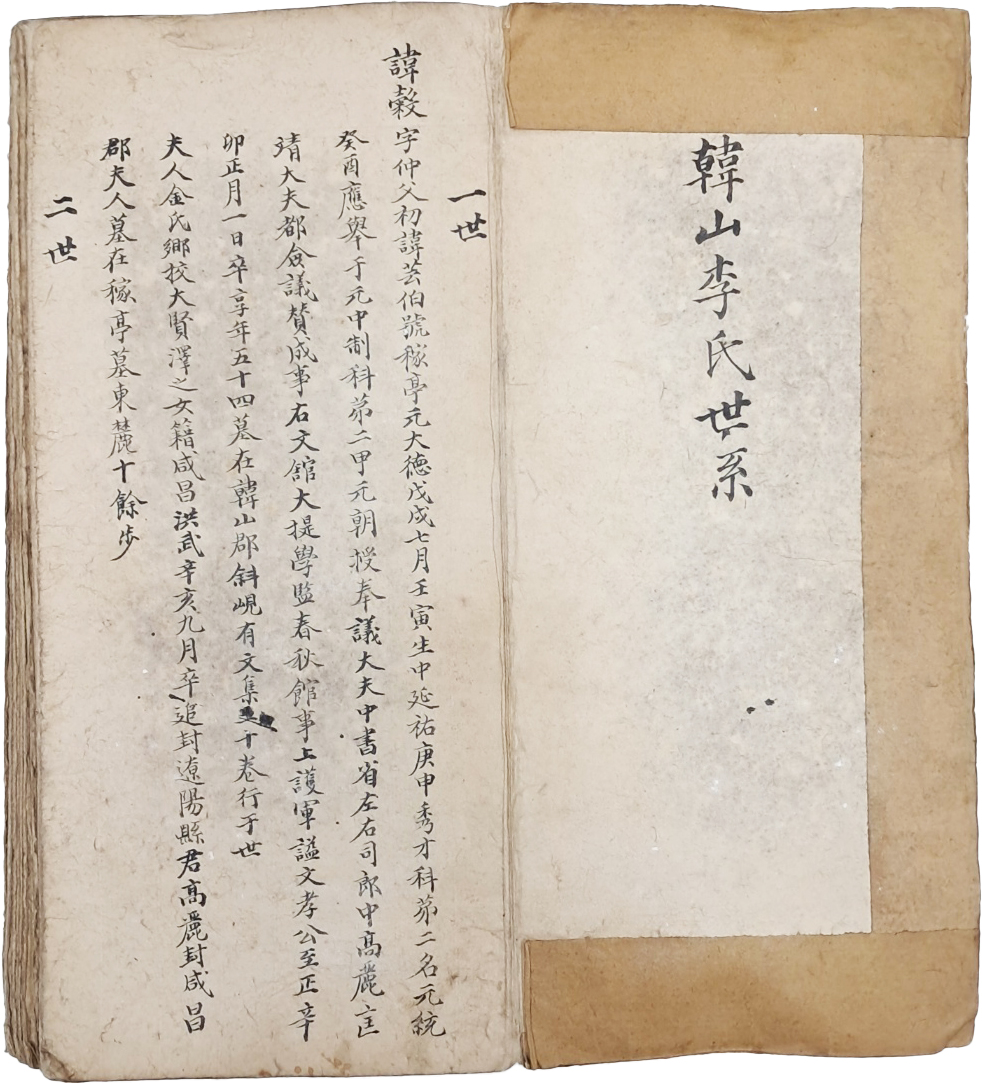 韓山李氏世系
一世
諱穀字仲父初諱芸伯號稼亭元大德戊戌七月壬寅生中延祐庚申秀才科苐二名元統
癸酉應舉于元中制科苐二甲元朝授奉議大夫中書省左右司郎中髙麗匡
靖大夫都僉議賛成事右文舘大提學監春秋館事上護軍謚文孝公至正辛
卯正月一日卒享年五十四墓在韓山郡斜峴有文集十卷行于世
夫人金氏鄉校大賢澤之女籍咸昌洪武辛亥九月卒追封遼陽縣君髙麗封咸昌
郡夫人墓在稼亭墓東麓十餘步
二世